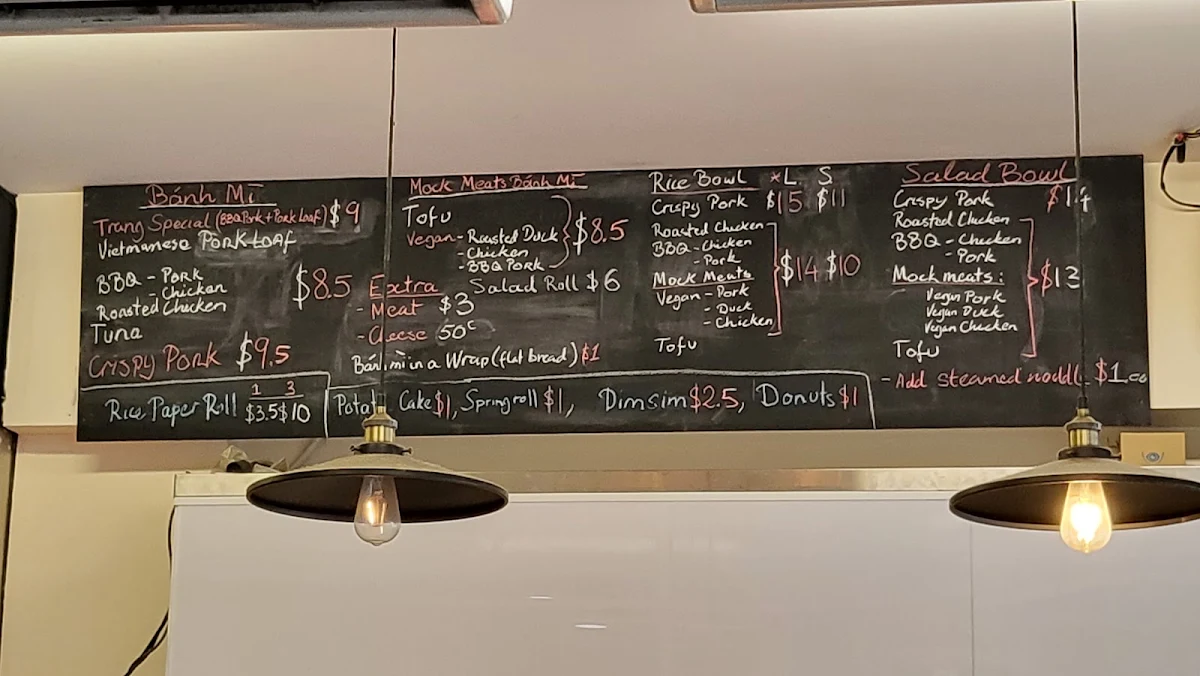 Bánh Mī
Trang Special (BBQ Pork + Pork Loaf) $9
Vietnamese PORK LOAF
BBQ - Pork
- Chicken
$8.5
Roasted Chicken
Tuna
Crispy Pork $9.5
Rice Paper Roll
1 3
$3.5 $10
Mock Meats Bánh Mī
Tofu
Vegan - Roasted Duck
- Chicken
- BBQ PORK
$8.5
Salad Roll $6
Extra
- Meat $3
- Cheese 50c
Bánh mì in a Wrap (flat bread) $1
Potato Cake $1, Spring roll $1, Dimsim $2.5, Donuts $1
Rice Bowl *L S
Crispy Pork $15 $11
Roasted Chicken
BBQ - Chicken
- Pork
Mock Meats
Vegan - Pork
- Duck
- Chicken
$14 $10
Tofu
Salad Bowl
Crispy Pork $14
Roasted Chicken
BBQ - Chicken
- Pork
Mock meats:
Vegan Pork
Vegan Duck
Vegan Chicken
$13
Tofu
- Add steamed noodle $1.00